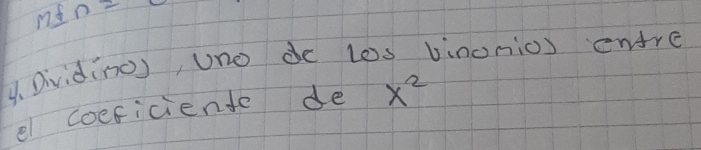 m±n=
4. Dividimos, uno de los binomios entre
el coeficiente de x²